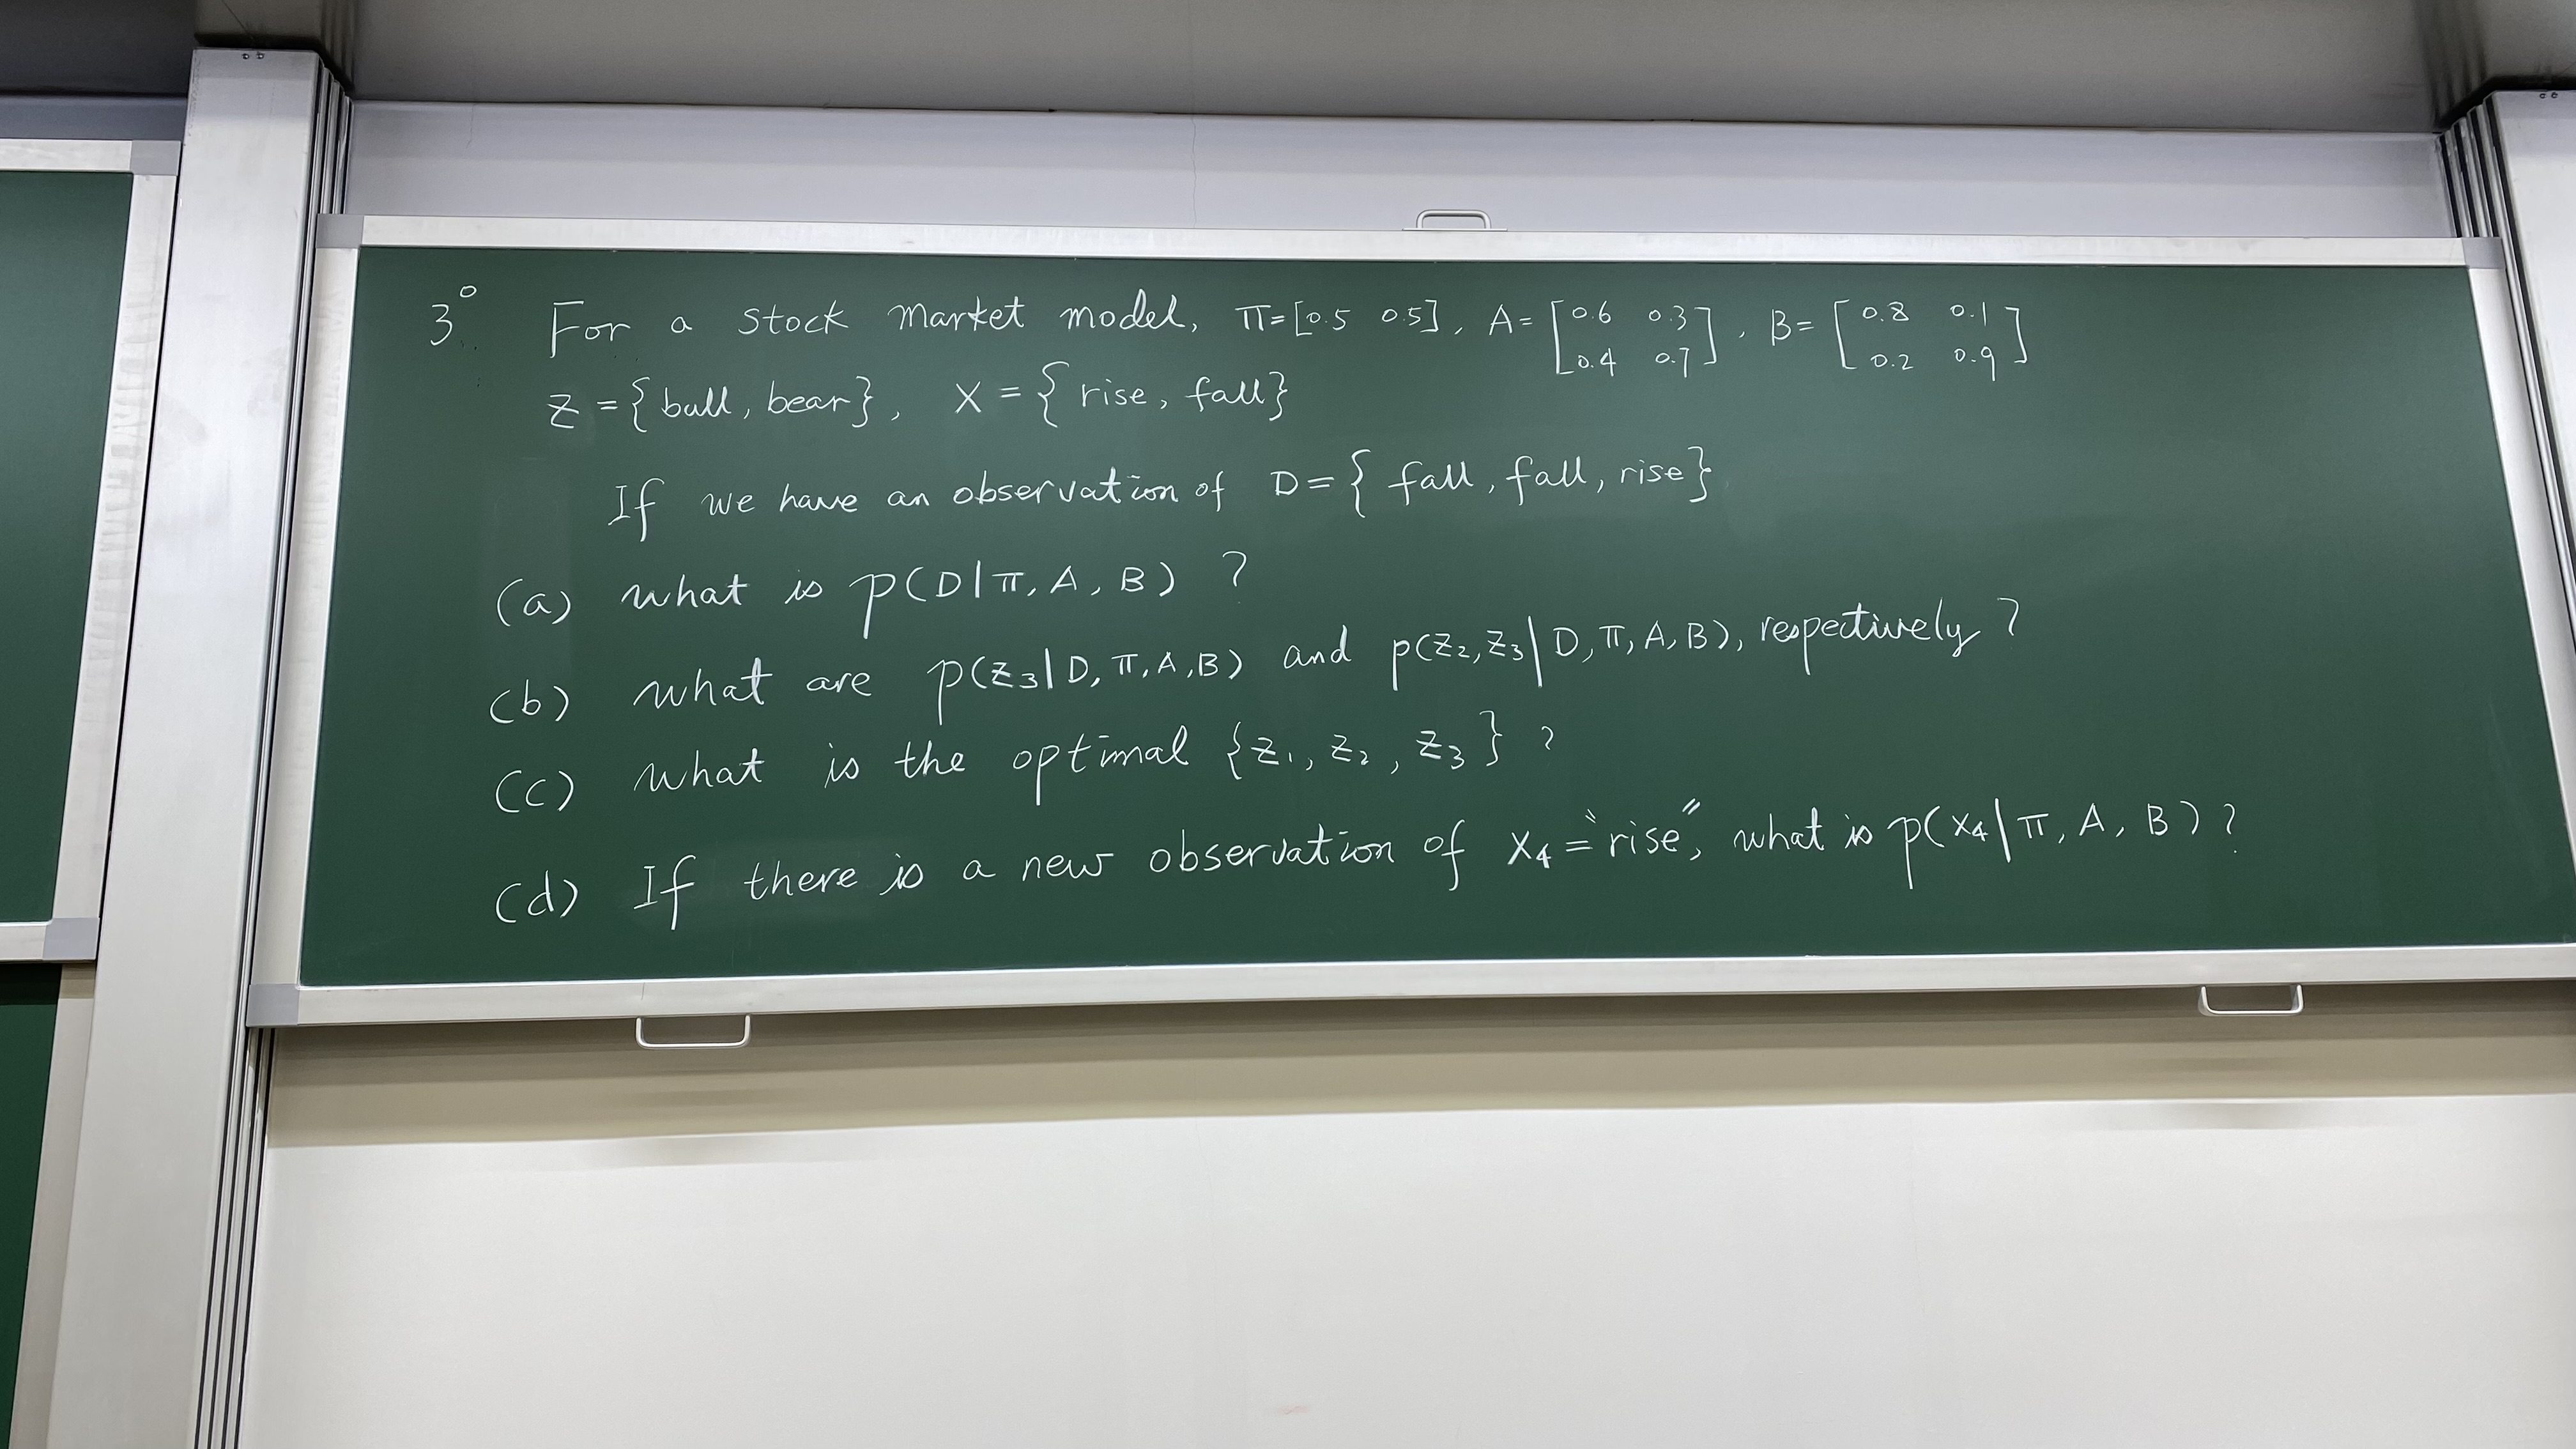 3° For a stock market model, π=[0.5 0.5], A=[0.6 0.3], B=[0.8 0.1]
[0.4 0.7] [0.2 0.9]
Z={bull, bear}, X={rise, fall}
If we have an observation of D={fall, fall, rise}
(a) what is p(D|π, A, B) ?
(b) what are p(z₃|D, π, A, B) and p(z₂, z₃|D, π, A, B), respectively ?
(c) what is the optimal {z₁, z₂, z₃} ?
(d) If there is a new observation of x₄="rise", what is p(x₄|π, A, B) ?